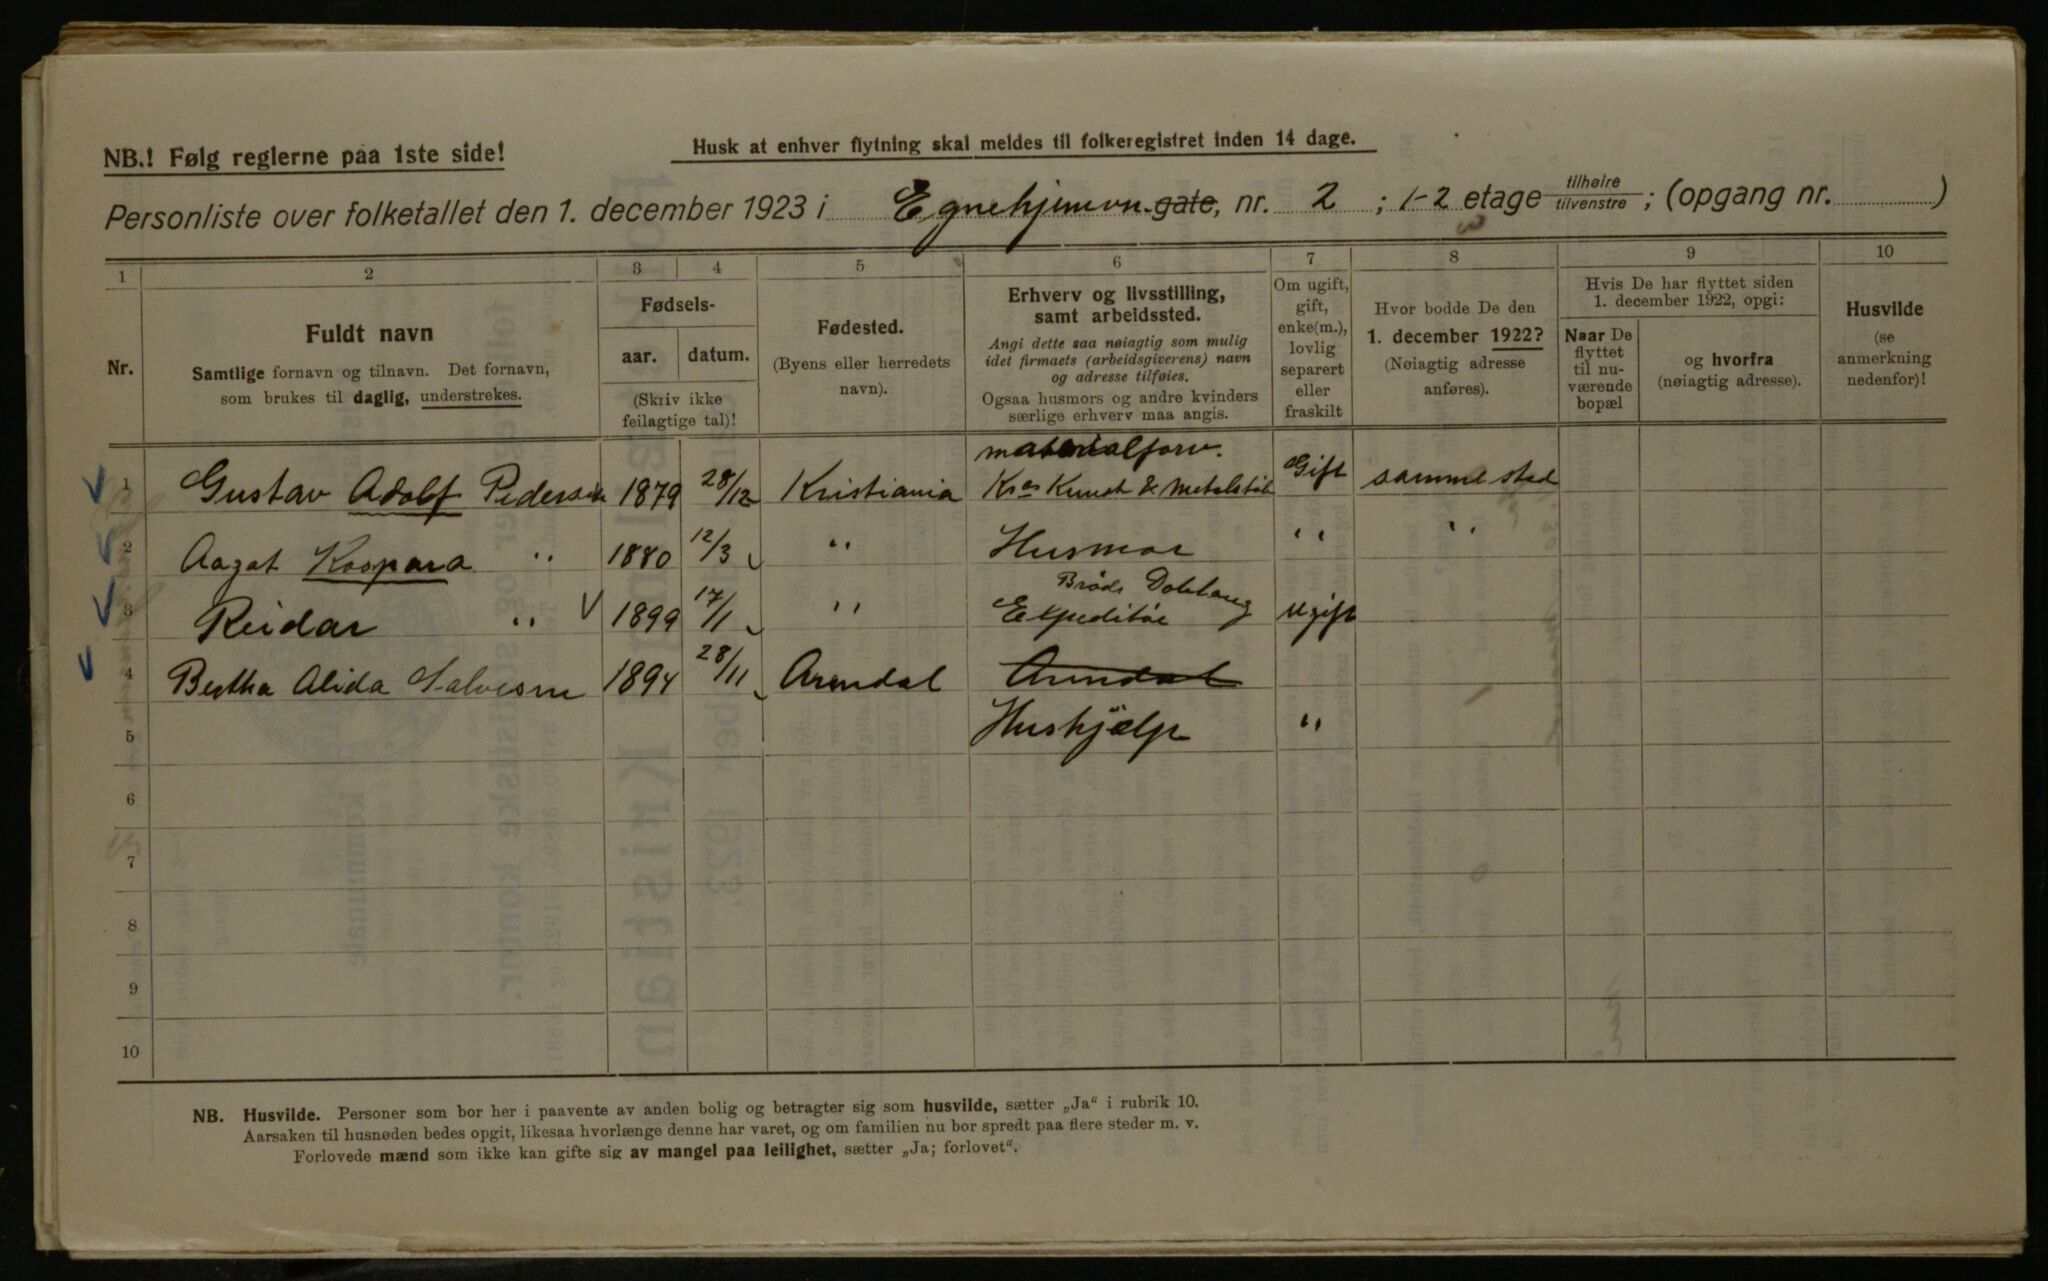 NB.! Følg reglerne paa 1ste side!
Husk at enhver flytning skal meldes til folkeregistret inden 14 dage.
Personliste over folketallet den 1. december 1923 i Egnehjemvn. gate, nr. 2 ; 1-2 etage tilhøire tilvenstre ; (opgang nr. )
1 2 3 4 5 6 7 8 9 10
Nr.
Fuldt navn
Samtlige fornavn og tilnavn. Det fornavn,
som brukes til daglig, understrekes.
Fødsels-
aar. datum.
(Skriv ikke
feilagtige tal)!
Fødested.
(Byens eller herredets
navn).
Erhverv og livsstilling,
samt arbeidssted.
Angi dette saa nøiagtig som mulig
idet firmaets (arbeidsgiverens) navn
og adresse tilføies.
Ogsaa husmors og andre kvinders
særlige erhverv maa angis.
Om ugift,
gift,
enke(m.),
lovlig
separert
eller
fraskilt
Hvor bodde De den
1. december 1922?
(Nøiagtig adresse
anføres).
Hvis De har flyttet siden
1. december 1922, opgi:
Naar De
flyttet
til nu-
værende
bopæl
og hvorfra
(nøiagtig adresse).
Husvilde
(se
anmerkning
nedenfor)!
materialforv.
1 Gustav Adolf Pedersen 1879 28/12 Kristiania Kr.as Kunst & Metalstøb Gift samme sted
2 Aagot Kaspara " 1880 12/3 " Husmor " "
Brødr. Dobloug
3 Reidar " 1899 17/1 " Expeditør Ugift
4 Bertha Alida Salvesen 1894 28/11 Arendal Arendal
5 Hushjælp "
6
7
8
9
10
NB. Husvilde. Personer som bor her i paavente av anden bolig og betragter sig som husvilde, sætter „Ja“ i rubrik 10.
Aarsaken til husnøden bedes opgit, likesaa hvorlænge denne har varet, og om familien nu bor spredt paa flere steder m. v.
Forlovede mænd som ikke kan gifte sig av mangel paa leilighet, sætter „Ja; forlovet“.